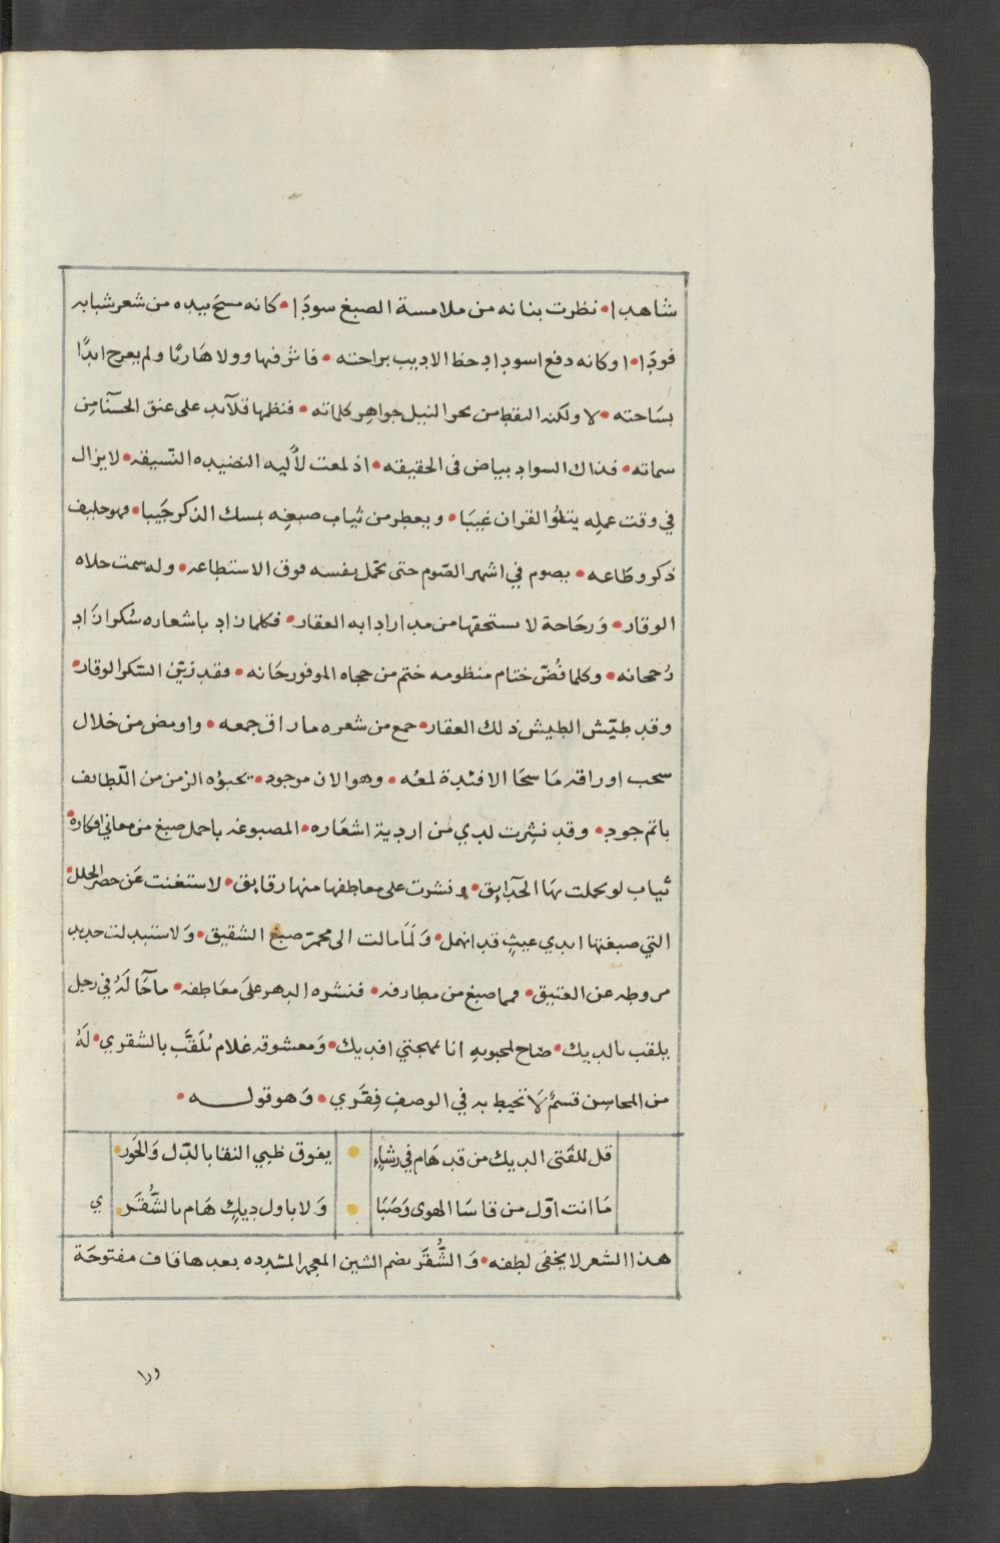 شاهدا • نظرت بنانه من ملامسة الصبغ سودا • كانه مسح بيده من شعر شبابه
فودا • او كانه دفع اسوداد حظ الاديب براحته • فانزفها وولا هاربا ولم يعرج ابدا
بساحته • لا ولكنه النقط من بحر النيل جواهر كلماته • فنظمها قلآئد على عنق الحسنآ من
سماته • فذاك السواد بياض فى الحقيقه • اذ لمعت لأليه النضيده النسيقه • لا يزال
في وقت عمله يتلوا القران غيبا • ويعطر من ثياب صبغه بمسك الذكر جيبا • فهو حليف
ذكر وطاعه • يصوم في اشهر الصوم حتى تحمل نفسه فوق الاستطاعه • وله سمت حلاه
الوقار • ورجاحة لا يستحقها من مدارادابه العقار • فكلما زاد باشعاره سكرا زاد
رجحانه • وكلما فض ختام منظومه ختم من حجاه الموفور حانه • وقد زين السكر الوقار •
وقد طيش الطيش ذلك العقار • جمع من شعره ما راق جمعه • واومض من خلال
سحب اوراقه ما سحا الافئدة لمعه • وهو الان موجود • يحبوه الزمن من اللطائف
باتم جود • وقد نشرت لدي من اردية اشعاره • المصبوغه باجمل صبغ من معاني افكاره •
ثياب لو تحملت بها الحدايق • ونشرت على معاطفها منها رقايق • لاستغنت عن خضر الحلل •
التي صبغتها ايدي غيث قد انهمل • ولما مالت الى محمر صبغ الشقيق • ولاستبدلت جديد
مروطه عن العتيق • فمما صبغ من مطارفه • فنشره الدهر على معاطفه • مآحا له في رجل
يلقب بالديك • صاح لمحبوبه انا بمهجتي افديك • ومعشوقه غلام يلقب بالشقري • له
من المحاسن قسم لا تحيط به في الوصف فقري • وهو قوله •
قل للفتى الديك من قد هام في رشاء • يفوق ظبي النقا بالدل والحور •
ما انت اول من قاسا الهوى وصبا • ولا باول ديك هام بالشقر • ي
هذا الشعر لا يخفى لطفه • والشقر بضم الشين المعجمه المشدده بعدها قاف مفتوحة
ورا